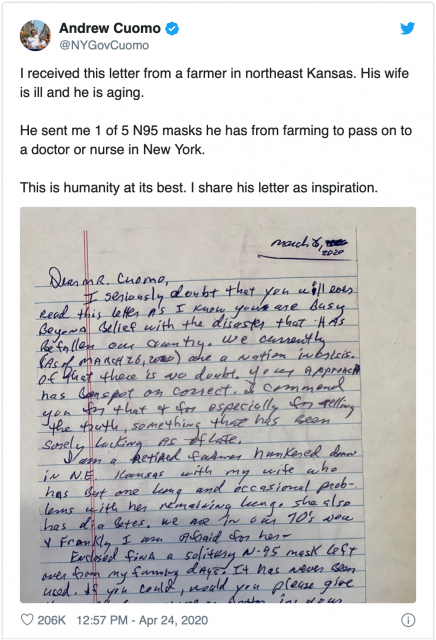 Andrew Cuomo
@NYGovCuomo
I received this letter from a farmer in northeast Kansas. His wife
is ill and he is aging.
He sent me 1 of 5 N95 masks he has from farming to pass on to
a doctor or nurse in New York.
This is humanity at its best. I share his letter as inspiration.
2020
Dear Mr. Cuomo,
I seriously doubt that you will ever
read this letter as I know you are Busy
Beyond Belief with the disaster that HAs
Befallen our country. We currently
(As of MARCH 26, 2020) are a nation in crisis.
Of that there is no doubt. your approach
has been spot on correct. I commend
you for that & for especially for telling
the truth, something that has been
sorely lacking As of late.
I am a retired farmer hunkered down
in N.E. Kansas with my wife who
has But one lung and occasional prob-
lems with her remaining lung. she also
has diabetes. we are in our 70's now
& Frankly I am afraid for her.
Enclosed find a solitary N-95 mask left
over from my farming days. It has never been
used. if you could, would you please give
206K 12:57 PM - Apr 24, 2020